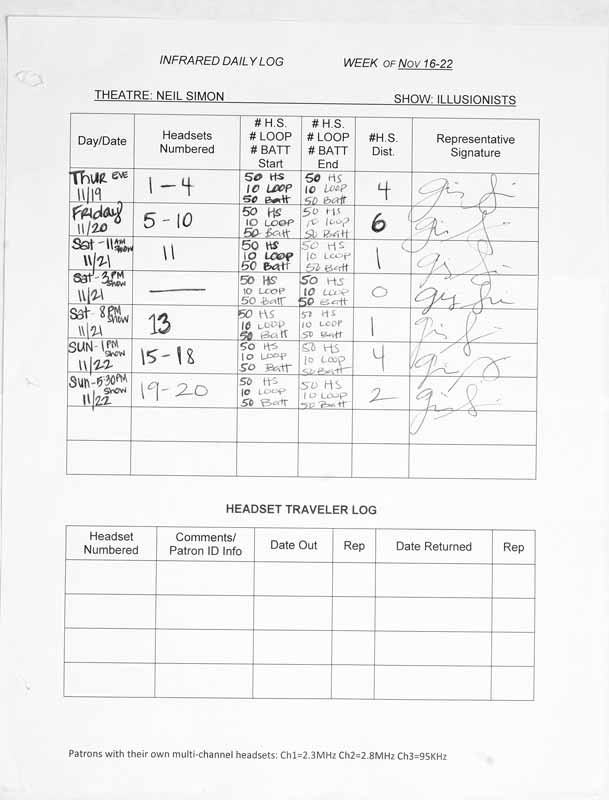 INFRARED DAILY LOG WEEK OF NOV 16-22
THEATRE: NEIL SIMON SHOW: ILLUSIONISTS
Day/Date
Headsets
Numbered
# H.S.
# LOOP
# BATT
Start
# H.S.
# LOOP
# BATT
End
#H.S.
Dist.
Representative
Signature
Thur EVE
11/19
1-4
50 HS
10 LOOP
50 Batt
50 HS
10 LOOP
50 Batt
4
Friday
11/20
5-10
50 HS
10 LOOP
50 Batt
50 HS
10 LOOP
50 Batt
6
Sat - 11AM
show
11/21
11
50 HS
10 LOOP
50 Batt
50 HS
10 LOOP
50 Batt
1
Sat - 3PM
show
11/21
—
50 HS
10 LOOP
50 Batt
50 HS
10 LOOP
50 Batt
0
Sat - 8PM
show
11/21
13
50 HS
10 LOOP
50 Batt
50 HS
10 LOOP
50 Batt
1
SUN - 1PM
show
11/22
15-18
50 HS
10 LOOP
50 Batt
50 HS
10 LOOP
50 Batt
4
Sun - 5:30PM
show
11/22
19-20
50 HS
10 LOOP
50 Batt
50 HS
10 LOOP
50 Batt
2
HEADSET TRAVELER LOG
Headset
Numbered
Comments/
Patron ID Info
Date Out
Rep
Date Returned
Rep
Patrons with their own multi-channel headsets: Ch1=2.3MHz Ch2=2.8MHz Ch3=95KHz